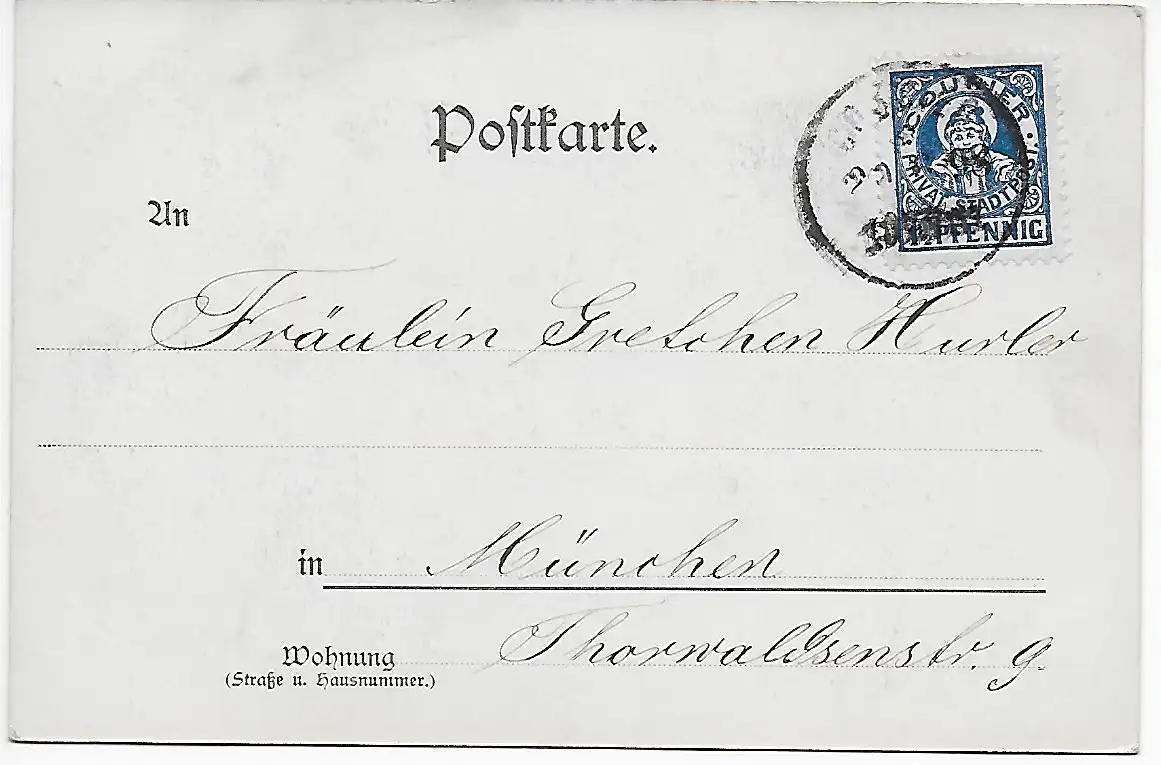 Postkarte.
COURIER
PRIVAT-STADTPOST
PFENNIG
An
Fräulein Gretchen Hurler
in München
Wohnung Thorwaldsenstr. 9.
(Straße u. Hausnummer.)